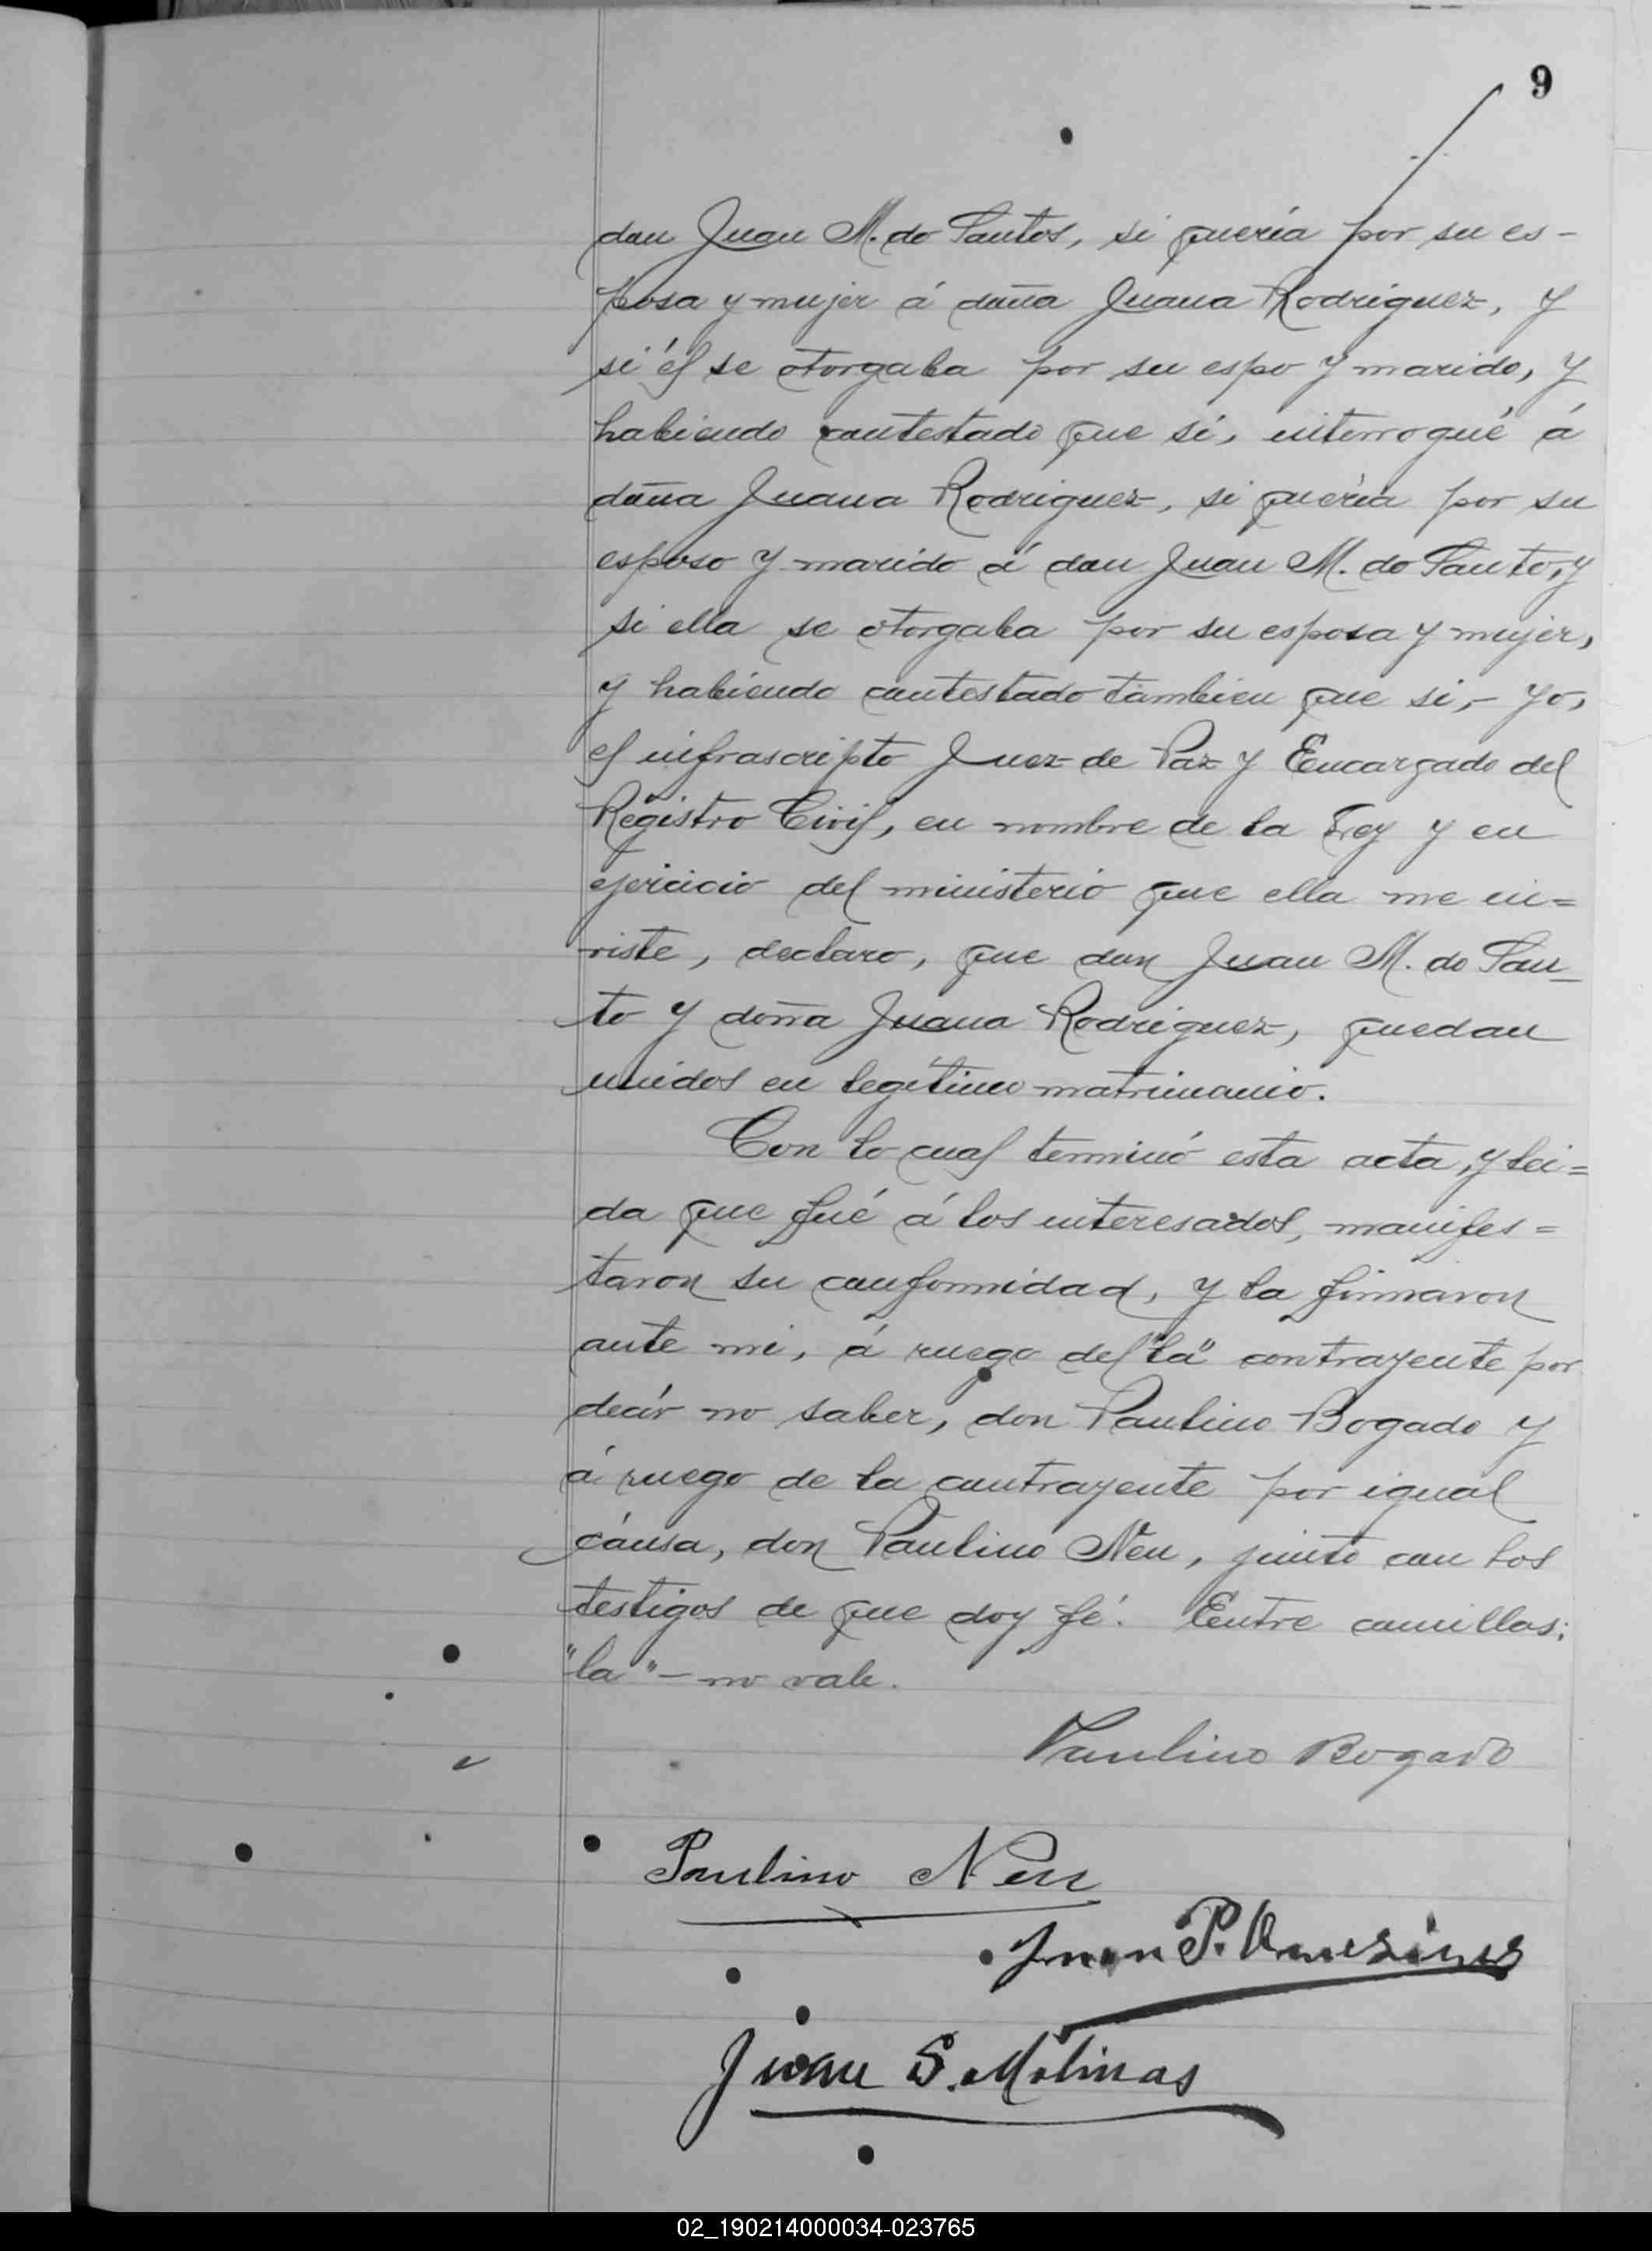 9
don Juan M. do Santos, si quería por su es-
posa y mujer á doña Juana Rodriguez, y
si él se otorgaba por su espo y marido, y
habiendo contestado que sí, interrogué á
doña Juana Rodriguez, si quería por su
esposo y marido á don Juan M. do Santo, y
si ella se otorgaba por su esposa y mujer,
y habiendo contestado tambien que si,- yo,
el infrascripto Juez de Paz y Encargado del
Registro Civil, en nombre de la Ley y en
ejercicio del ministerio que ella me in=
viste, declaro, que don Juan M. do San-
to y doña Juana Rodriguez, quedan
unidos en legítimo matrimonio.
Con lo cual terminó esta acta, y lei=
da que fué á los interesados, manifes=
taron su conformidad, y la firmaron
ante mi, á ruego del "la" contrayente por
decir no saber, don Paulino Bogado y
á ruego de la contrayente por igual
cáusa, don Paulino Neu, junto con los
testigos de que doy fé. Entre comillas:
"la" - no vale.
Paulino Bogado
Paulino Neu
Juan P.
Juan S. Molinas
02_190214000034-023765